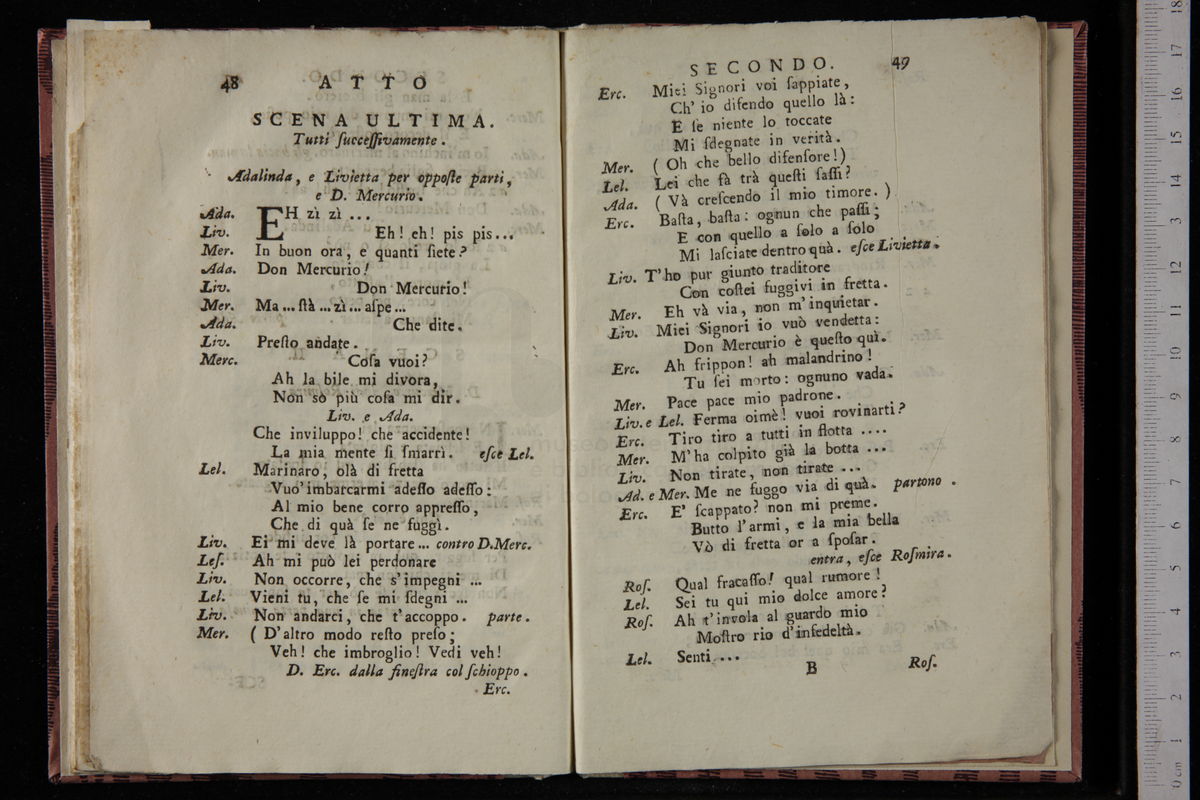 48 ATTO
SCENA ULTIMA.
Tutti ſucceſſivamente.
Adalinda, e Livietta per oppoſte parti,
e D. Mercurio.
Ada. EH zì zì ...
Liv. Eh! eh! pis pis...
Mer. In buon ora, e quanti ſiete?
Ada. Don Mercurio!
Liv. Don Mercurio!
Mer. Ma... ſtà ... zì... aſpe...
Ada. Che dite.
Liv. Preſto andate.
Merc. Coſa vuoi?
Ah la bile mi divora,
Non sò più coſa mi dir.
Liv. e Ada.
Che inviluppo! che accidente!
La mia mente ſi ſmarrì. eſce Lel.
Lel. Marinaro, olà di fretta
Vuo' imbarcarmi adeſſo adeſſo:
Al mio bene corro appreſſo,
Che di quà ſe ne fuggì.
Liv. Ei mi deve là portare... contro D.Merc.
Leſ. Ah mi può lei perdonare
Liv. Non occorre, che s'impegni ...
Lel. Vieni tu, che ſe mi ſdegni ...
Liv. Non andarci, che t'accoppo. parte.
Mer. ( D'altro modo reſto preſo;
Veh! che imbroglio! Vedi veh!
D. Erc. dalla fineſtra col ſchioppo.
Erc.
SECONDO. 49
Erc. Miei Signori voi ſappiate,
Ch' io difendo quello là:
E ſe niente lo toccate
Mi ſdegnate in verità.
Mer. ( Oh che bello difenſore!)
Lel. Lei che fà trà queſti ſaſſi?
Ada. ( Và creſcendo il mio timore. )
Erc. Baſta, baſta: ognun che paſſi;
E con quello a ſolo a ſolo
Mi laſciate dentro quà. eſce Livietta.
Liv. T'ho pur giunto traditore
Con coſtei fuggivi in fretta.
Mer. Eh và via, non m'inquietar.
Liv. Miei Signori io vuò vendetta:
Don Mercurio è queſto quì.
Erc. Ah frippon! ah malandrino!
Tu ſei morto: ognuno vada.
Mer. Pace pace mio padrone.
Liv. e Lel. Ferma oimè! vuoi rovinarti?
Erc. Tiro tiro a tutti in flotta ....
Mer. M'ha colpito già la botta ...
Liv. Non tirate, non tirate ...
Ad. e Mer. Me ne fuggo via di quà. partono.
Erc. E' ſcappato? non mi preme.
Butto l'armi, e la mia bella
Vò di fretta or a ſpoſar.
entra, eſce Roſmira.
Roſ. Qual fracaſſo! qual rumore!
Lel. Sei tu qui mio dolce amore?
Roſ. Ah t'invola al guardo mio
Moſtro rio d'infedeltà.
Lel. Senti...
B Roſ.